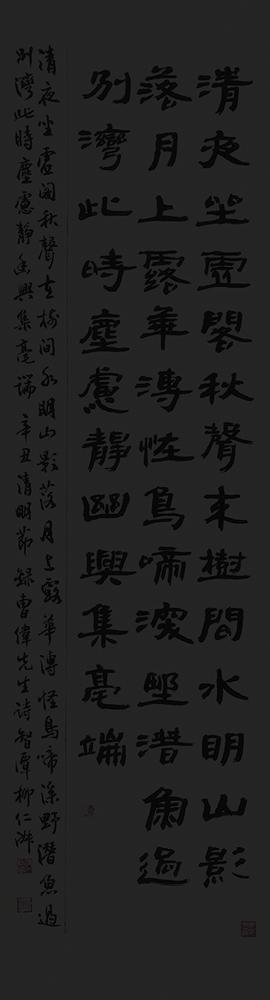 清夜坐虛閣秋聲在樹間水明山影
落月上露華漙怪鳥啼深野潛魚過
別灣此時塵慮靜幽興集毫端
清夜坐虛閣秋聲在樹間水明山影落月上露華漙怪鳥啼深野潛魚過
別灣此時塵慮靜幽興集毫端 辛丑清明節錄曹偉先生詩智潭柳仁